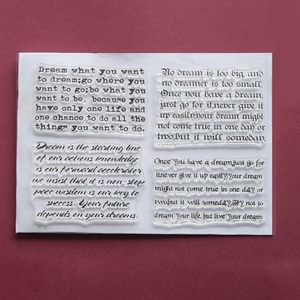 Dream what you want
to dream;go where you
want to go;be what you
want to be, because you
have only one life and
one chance to do all the
things you want to do.
No dream is too big, and
no dreamer is too small.
Once you have a dream,
just go for it,never give it
up easily,your dream might
not come true in one day or
two,but it will someday.
Dream is the starting line
of our actions knowledge
is our forward accelerator
we insist that it is non-stop
pace wisdom is our key to
success. Your future
depends on your dreams.
Once you have a dream,just go for
it,never give it up easily,your dream
might not come true in one day or
two,but it will someday. Try not to
dream your life, but live your dream.